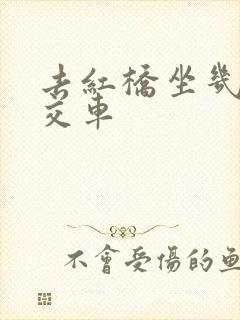 去紅橋坐幾
交車
不會受傷的魚